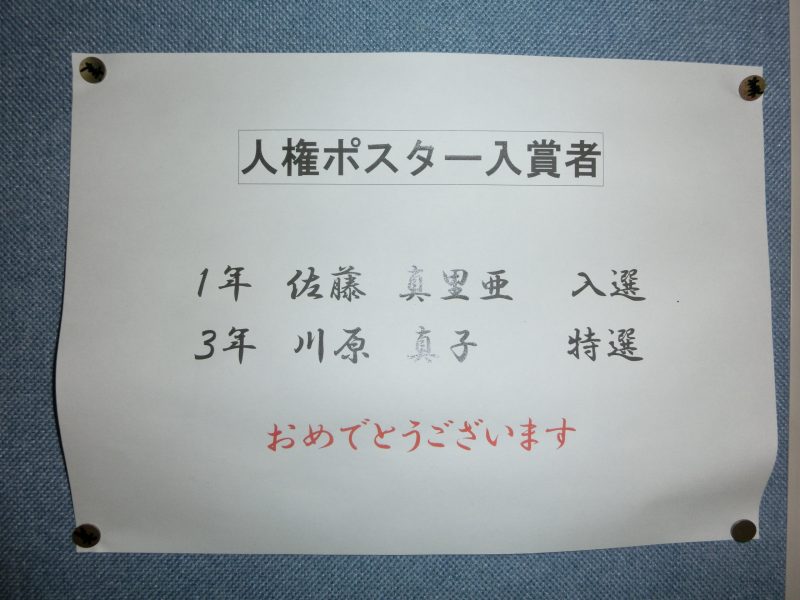 人権ポスター入賞者
1年 佐藤 真里亜 入選
3年 川原 真子 特選
おめでとうございます